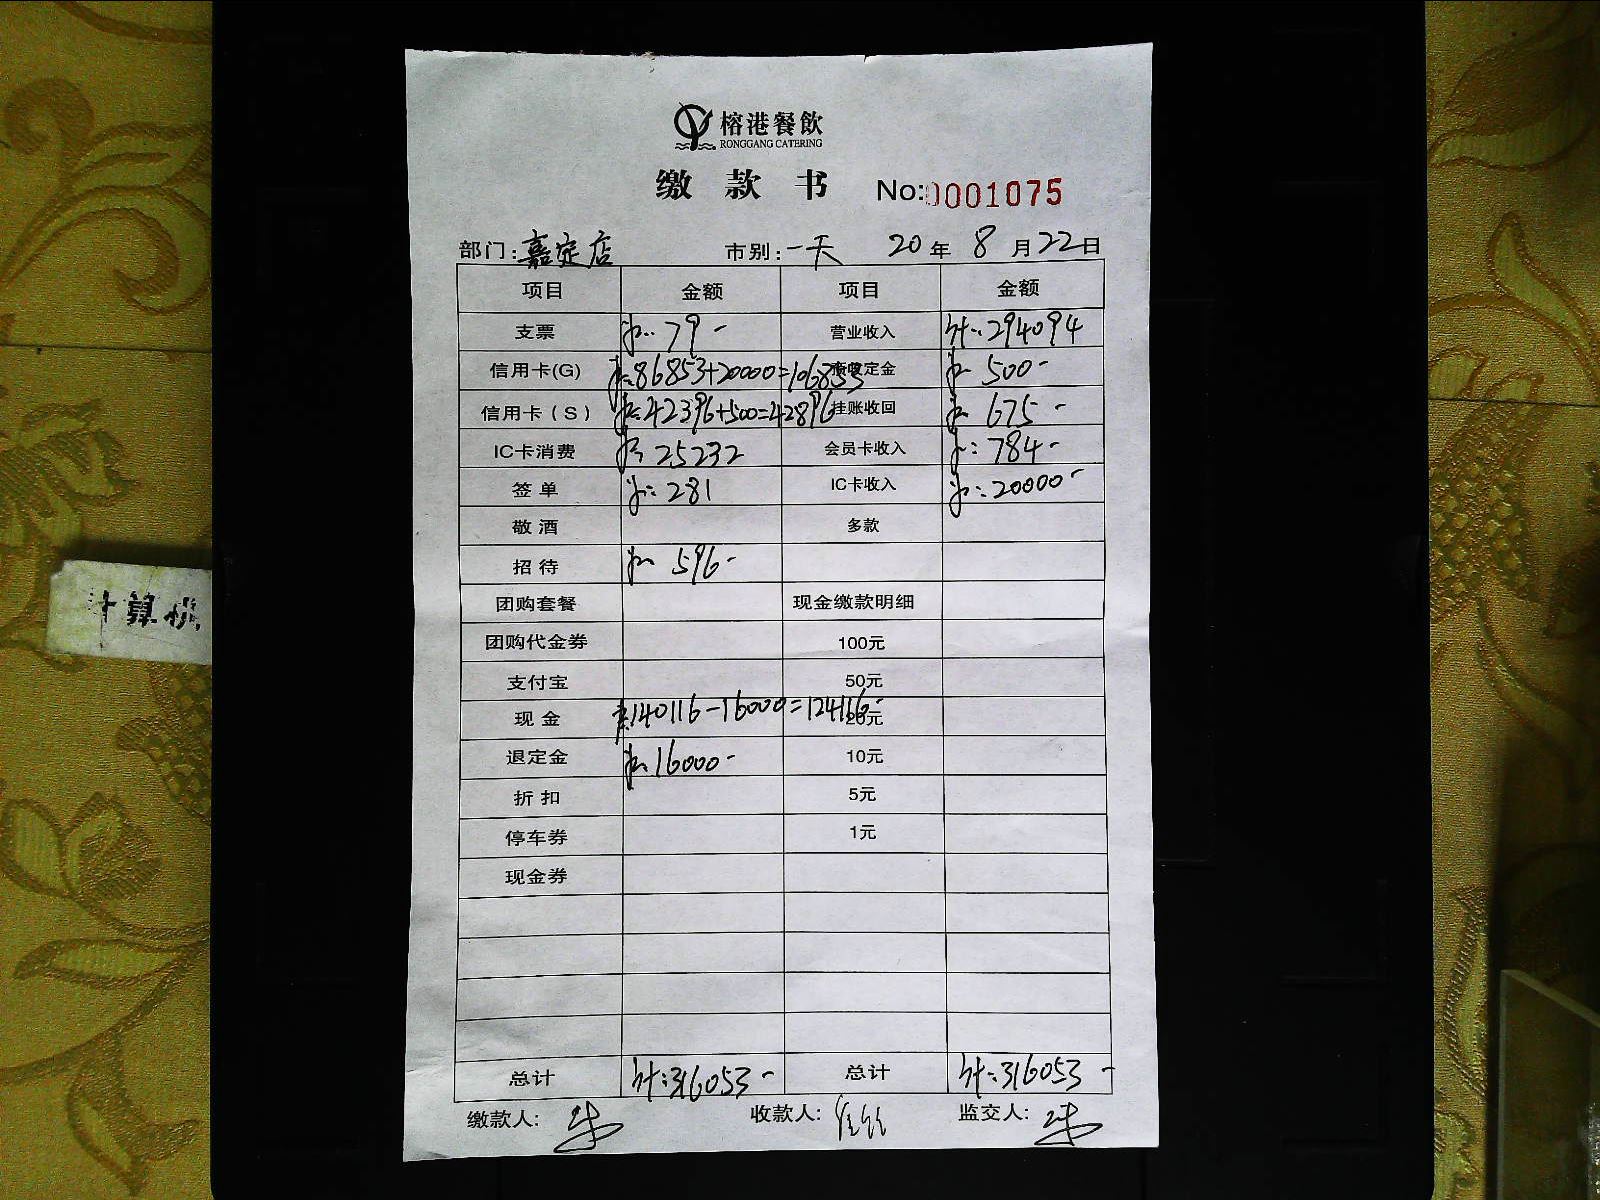 榕港餐飲
RONGGANG CATERING
缴款书 No:0001075
部门:嘉定店 市别:一天 20年8月22日
项目 金额 项目 金额
支票 79- 营业收入 计:294094
信用卡(G) 86853+20000=106853 定金 500-
信用卡(S) 42396+500=42896 挂账收回 675-
IC卡消费 25232 会员卡收入 784-
签单 281 IC卡收入 20000-
敬酒 多款
招待 596-
团购套餐 现金缴款明细
团购代金券 100元
支付宝 50元
现金 140116-16000=124116- 20元
退定金 16000- 10元
折扣 5元
停车券 1元
现金券
总计 计:316053- 总计 计:316053-
缴款人: 朱 收款人: 监交人: 朱
计算机